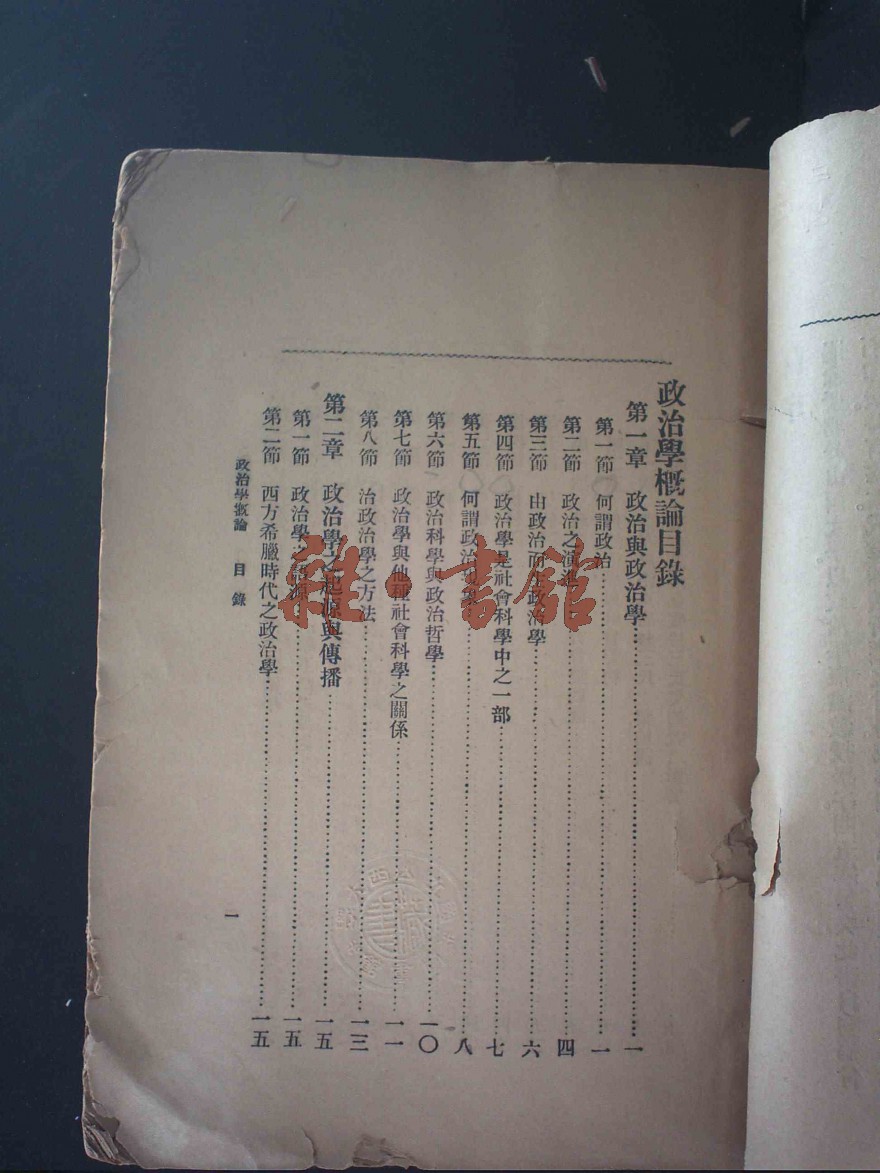 政治學概論目錄
第一章 政治與政治學……一
第一節 何謂政治……一
第二節 政治之演進……四
第三節 由政治而生政治學……六
第四節 政治學是社會科學中之一部……七
第五節 何謂政治學……八
第六節 政治科學與政治哲學……一〇
第七節 政治學與他種社會科學之關係……一一
第八節 治政治學之方法……一三
第二章 政治學之起源與傳播……一五
第一節 政治學之語源……一五
第二節 西方希臘時代之政治學……一五
政治學概論 目錄
一
雜·書館